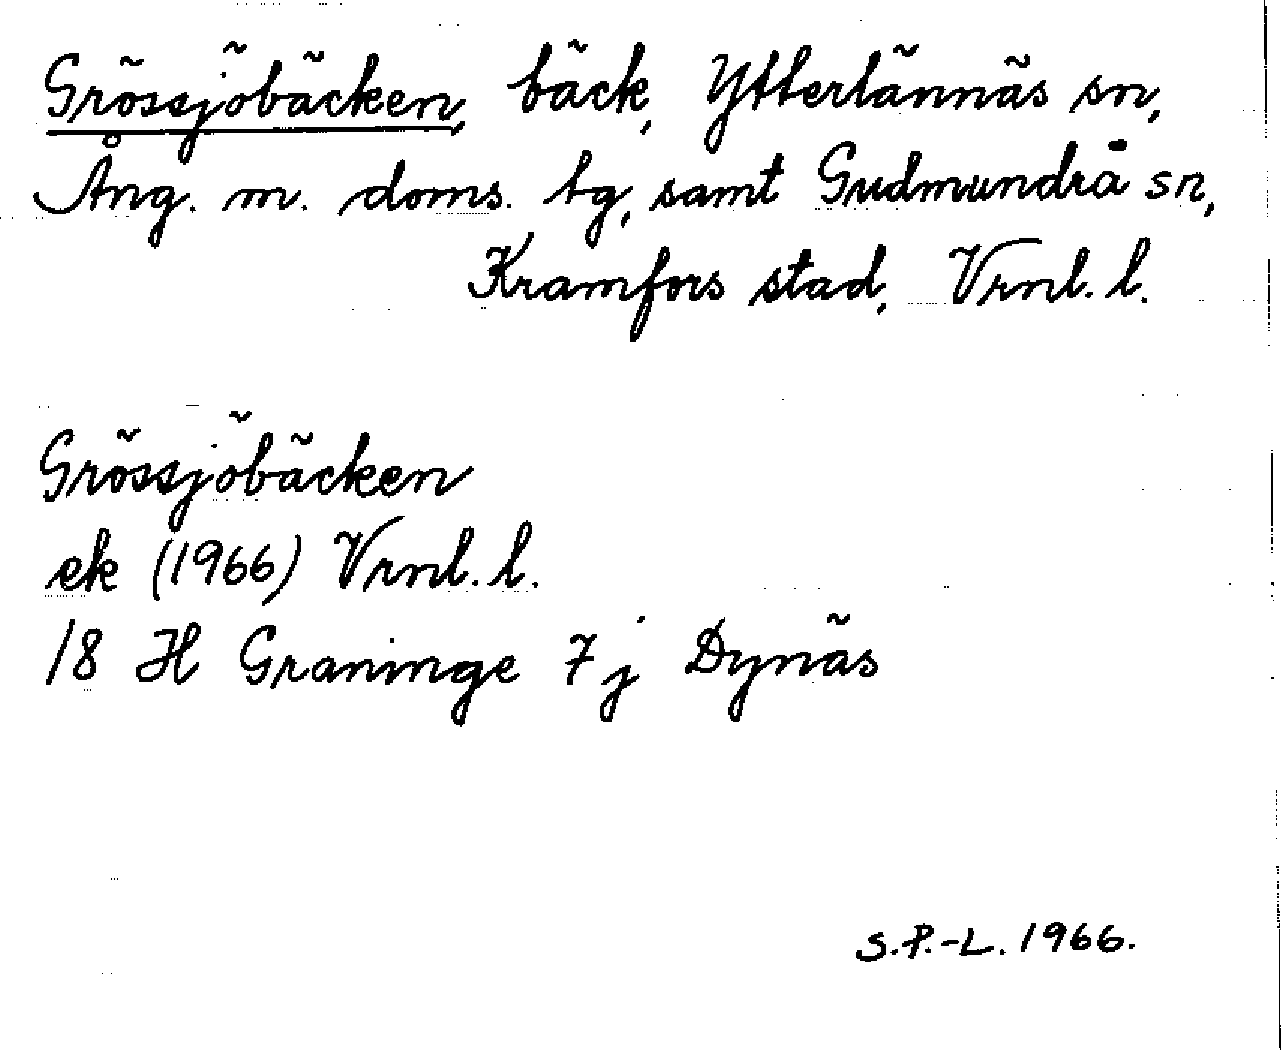 Grössjöbäcken, bäck, Ytterlännäs sn,
Ång. m. doms. tg, samt Gudmundrå sn,
Kramfors stad, Vrnl. l.
Grössjöbäcken
ek (1966) Vrnl. l.
18 H Graninge 7j Dynäs
S.P.-L. 1966.